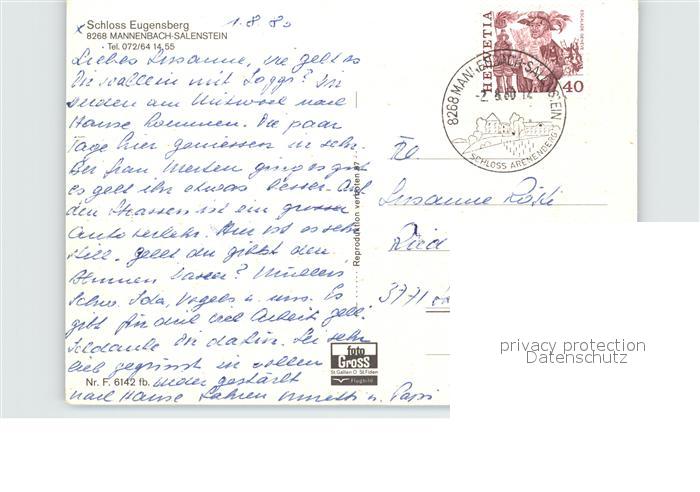 Schloss Eugensberg
8268 MANNENBACH-SALENSTEIN
Tel. 072/64 14 55
1.8.80
Liebes Susanne, wie geht es
Dir allein mit Joggi? Wir
werden am Mittwoch nach
Hause kommen. Die paar
Tage hier geniessen wir sehr.
Bei Frau Merten ging es gut
es geht ihr etwas besser. Auf
den Strassen ist ein grosser
Autoverkehr. Hier ist es sehr
still, gellt du gibst den
Blumen Wasser?
Schw. Ida, Vogels u. uns. Es
gibt für dich viel Arbeit gell.
dafür. Sei sehr
lieb gegrüsst wir wollen
wieder gestärkt
nach Hause fahren Muetti u. Papi
Nr. F. 6142 fb.
foto
Gross
St. Gallen O St. Fiden
Flugbild
Reproduktion verboten
HELVETIA
ESCALADE GENÈVE
40
8268 MANNENBACH-SALENSTEIN
-2.8.80
SCHLOSS ARENENBERG
Susanne
Ried
3771
privacy protection
Datenschutz